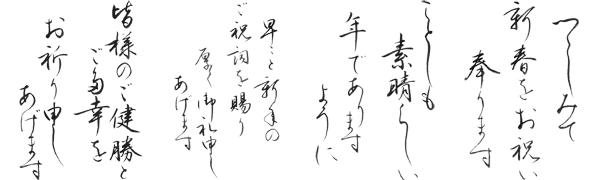 つつしみて
新春をお祝い
奉ります
ことしも
素晴らしい
年であります
ように
早々と新年の
ご祝詞を賜り
厚く御礼申し
あげます
皆様のご健勝と
ご多幸を
お祈り申し
あげます